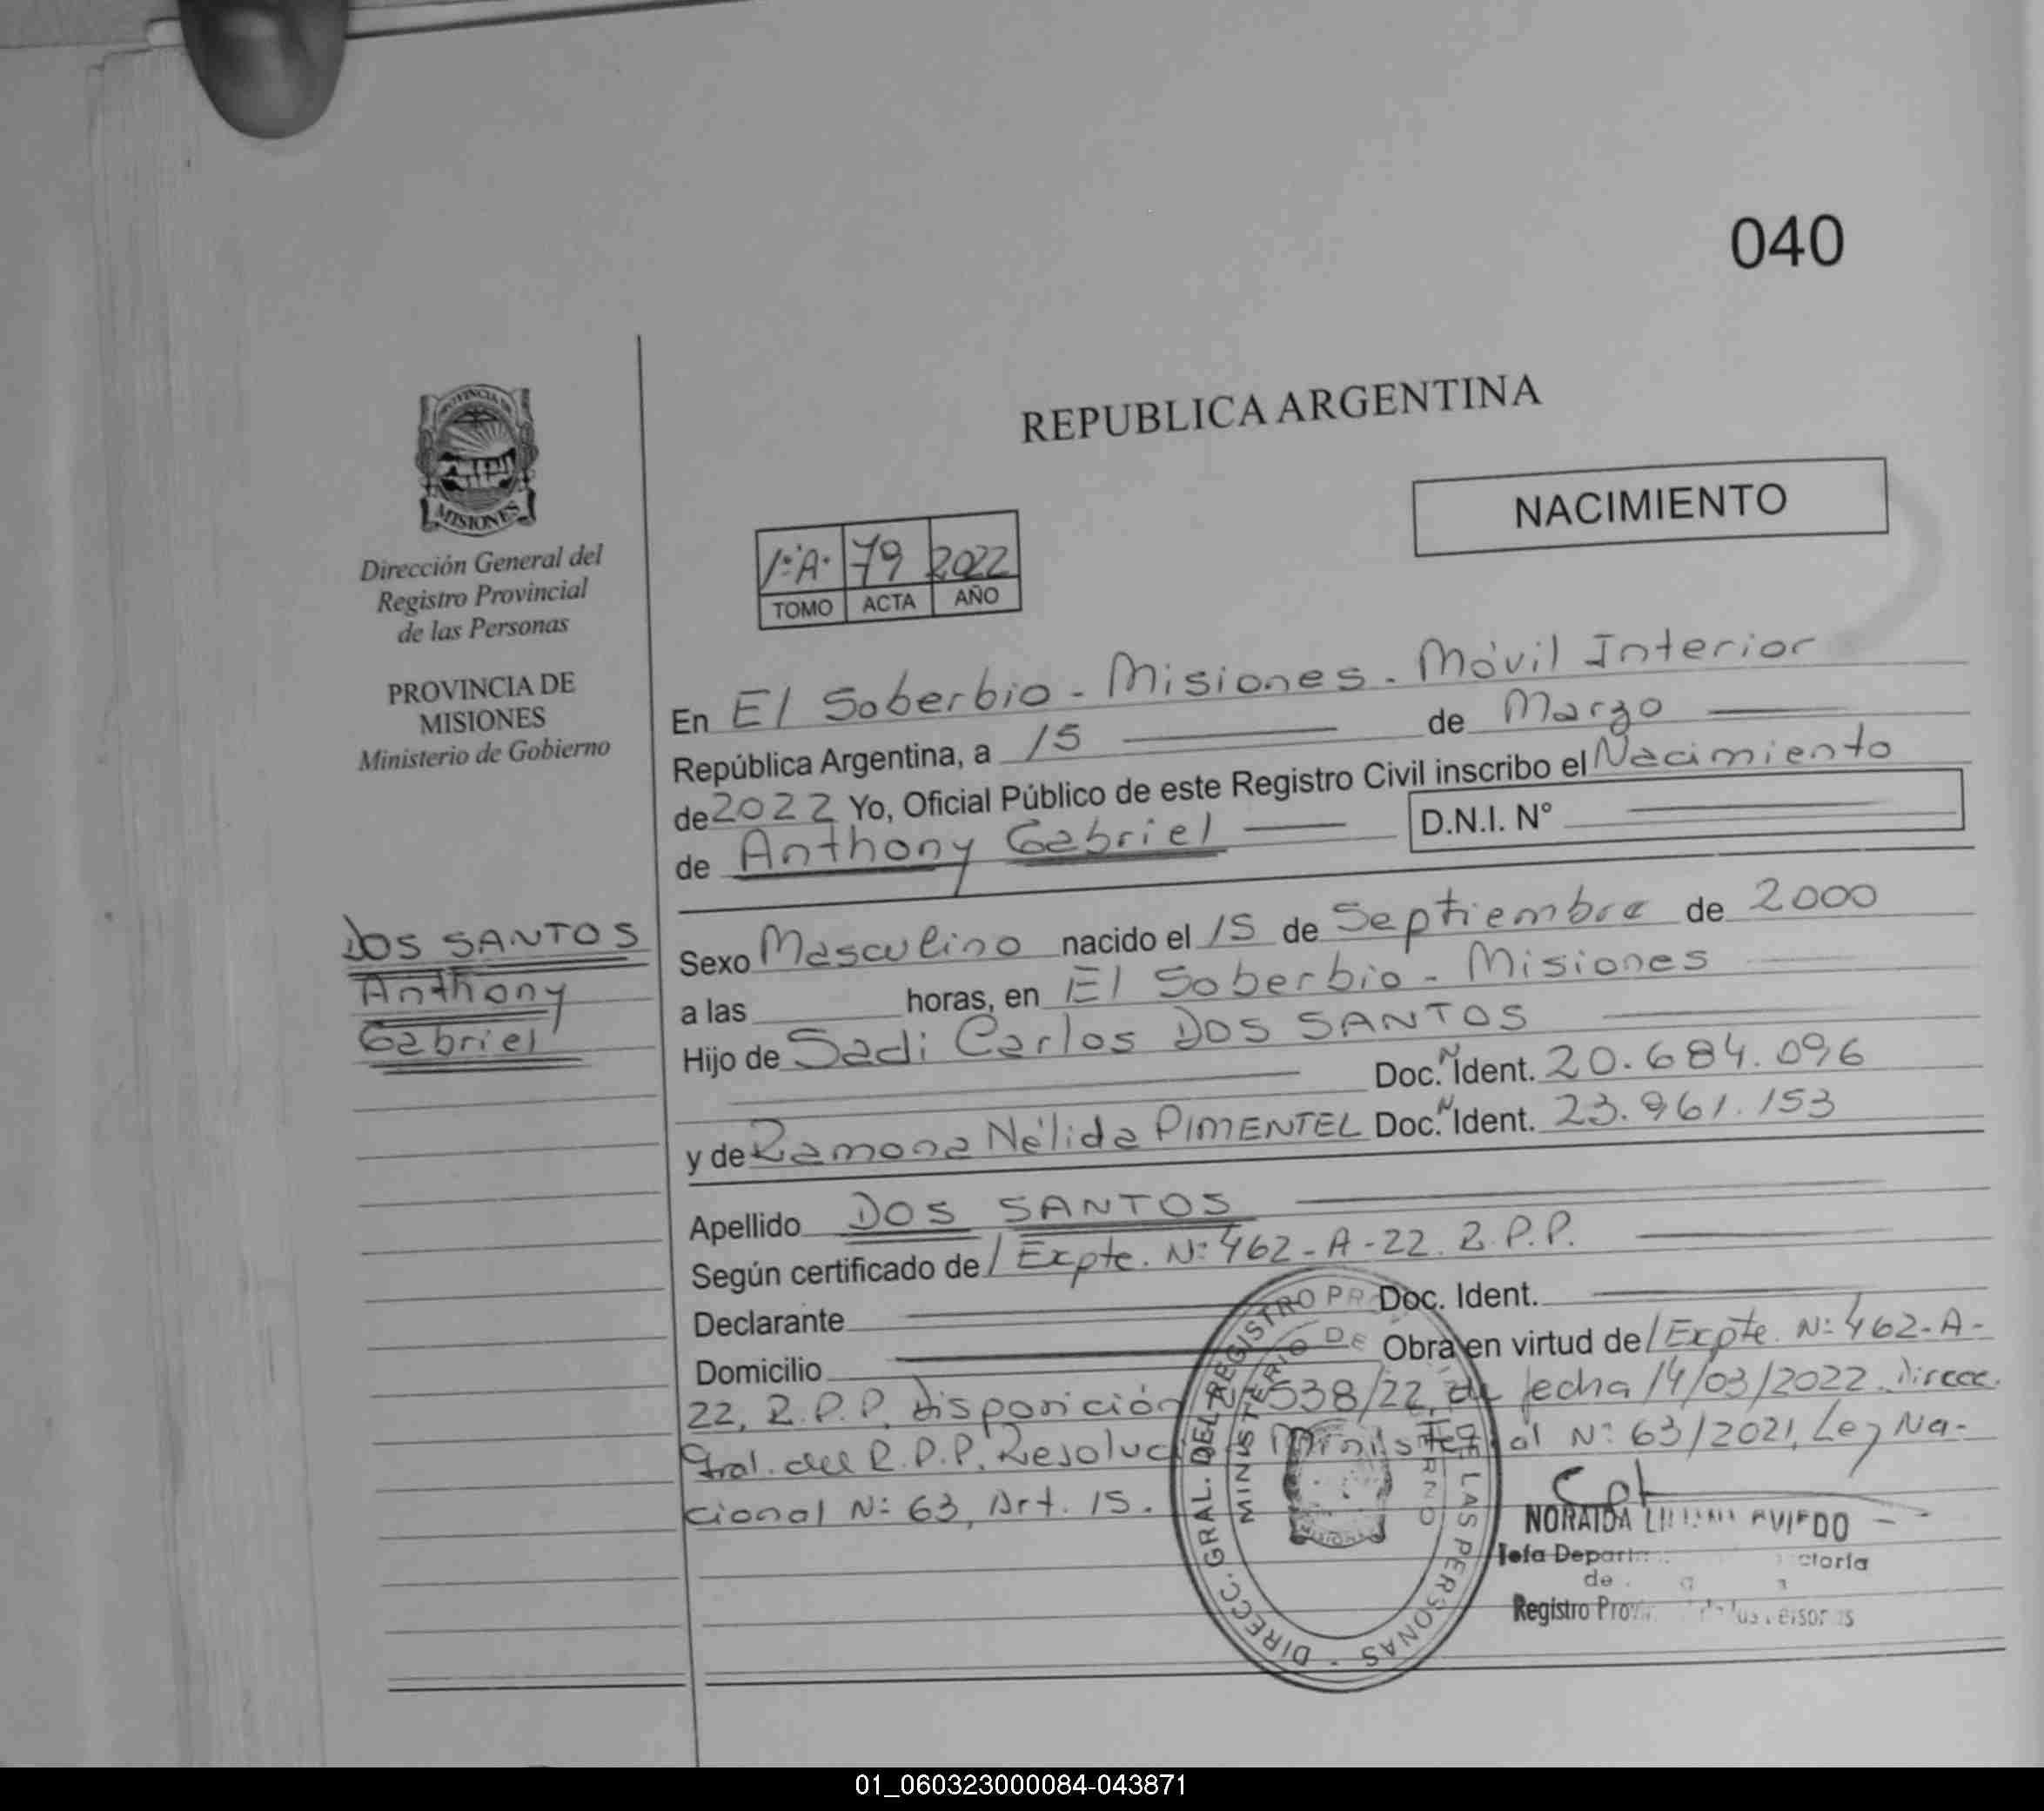 040
REPUBLICA ARGENTINA
NACIMIENTO
PROVINCIA DE
MISIONES
Dirección General del
Registro Provincial
de las Personas
PROVINCIA DE
MISIONES
Ministerio de Gobierno
1º A. 79 2022
TOMO ACTA AÑO
En El Soberbio - Misiones. Móvil Interior
República Argentina, a 15 de Marzo
de 2022 Yo, Oficial Público de este Registro Civil inscribo el Nacimiento
de Anthony Gabriel D.N.I. Nº
DOS SANTOS
Anthony
Gabriel
Sexo Masculino nacido el 15 de Septiembre de 2000
a las horas, en El Soberbio - Misiones
Hijo de Sadi Carlos DOS SANTOS
Doc. N Ident. 20.684.096
y de Ramona Nélida PIMENTEL Doc. N Ident. 23.961.153
Apellido DOS SANTOS
Según certificado de / Expte. Nº 462-A-22. R.P.P.
Declarante Doc. Ident.
Domicilio Obra en virtud de / Expte. Nº 462-A-
22, R.P.P. Disposición Nº 538/22, de fecha 14/03/2022. Direcc.
Gral. del R.P.P. Resolución Ministerial Nº 63/2021, Ley Na-
cional Nº 63, Art. 15.
DIRECC. GRAL. DEL REGISTRO PR DE LAS PERSONAS -
MINISTERIO DE
MISIONES
NORAIDA
Jefa
de
Registro
01_060323000084-043871